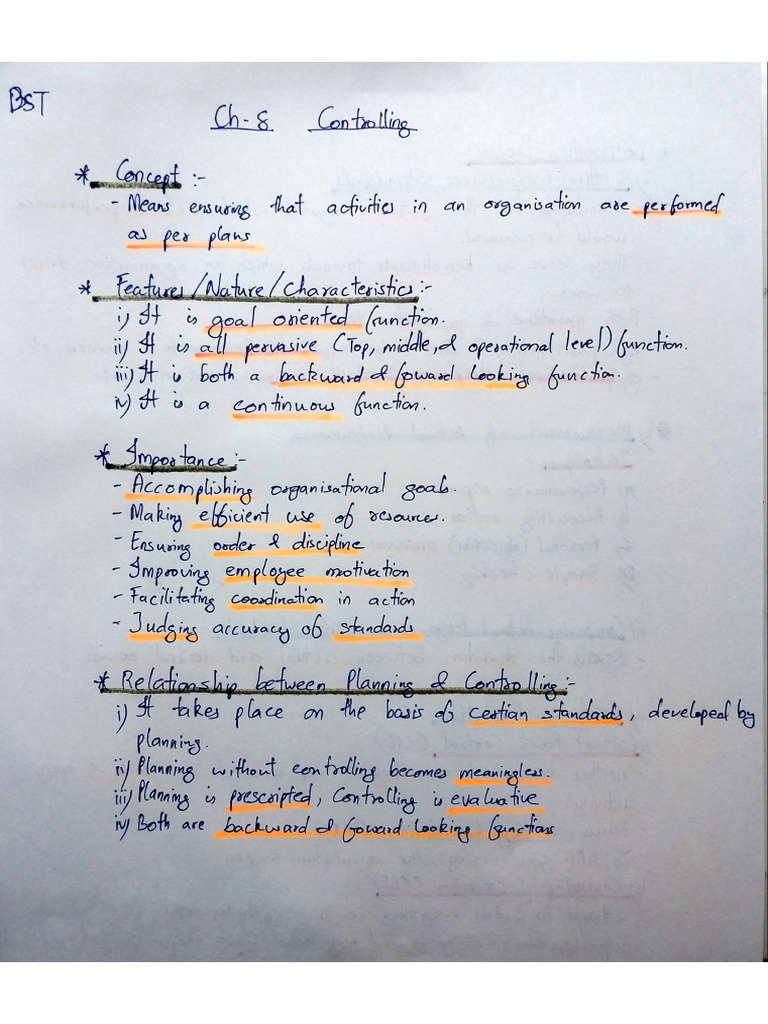 BST
Ch-8 Controlling
* Concept :-
- Means ensuring that activities in an organisation are performed
as per plans
* Features/Nature/Characteristics:-
i) It is goal oriented function.
ii) It is all pervasive (Top, middle, & operational level) function.
iii) It is both a backward & foward looking function.
iv) It is a continuous function.
* Importance:-
- Accomplishing organisational goals.
- Making efficient use of resources.
- Ensuring order & discipline
- Improving employee motivation
- Facilitating coordination in action
- Judging accuracy of standards
* Relationship between Planning & Controlling:-
i) It takes place on the basis of certian standards, developed by
planning.
ii) Planning without controlling becomes meaningless.
iii) Planning is prescripted, Controlling is evaluative
iv) Both are backward & foward looking functions